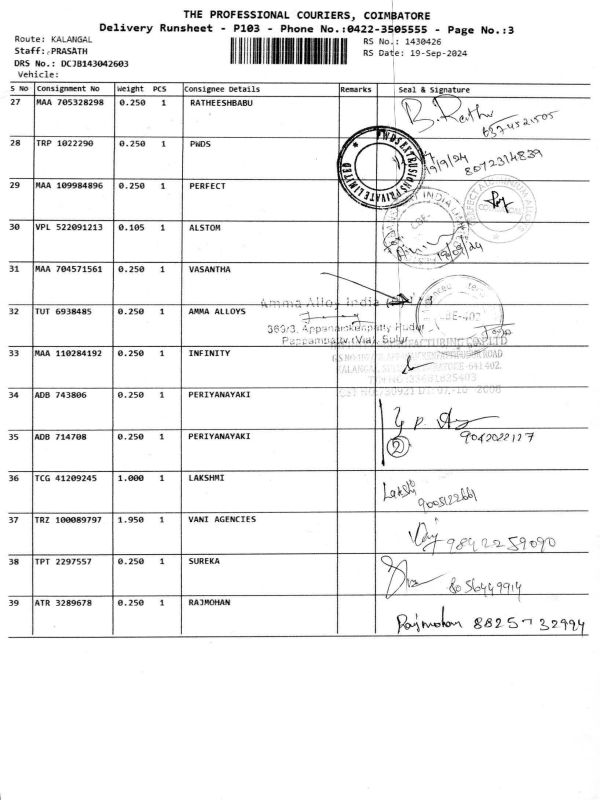 THE PROFESSIONAL COURIERS, COIMBATORE
Delivery Runsheet - P103 - Phone No.:0422-3505555 - Page No.:3
Route: KALANGAL
RS No.: 1430426
Staff: PRASATH
RS Date: 19-Sep-2024
DRS No.: DCJB143042603
Vehicle:
S No Consignment No Weight PCS Consignee Details Remarks Seal & Signature
27 MAA 705328298 0.250 1 RATHEESHBABU
B. Rathe
28 TRP 1022290 0.250 1 PWDS
PWDS EXTRUSIONS PRIVATE LIMITED
19/9/24
8072314839
29 MAA 109984896 0.250 1 PERFECT
30 VPL 522091213 0.105 1 ALSTOM
19/09/24
31 MAA 704571561 0.250 1 VASANTHA
Amma Alloy India
32 TUT 6938485 0.250 1 AMMA ALLOYS
369/3, Appanaickenpatty Pudur
Pappampatty (Via), Sulur
33 MAA 110284192 0.250 1 INFINITY
34 ADB 743806 0.250 1 PERIYANAYAKI
35 ADB 714708 0.250 1 PERIYANAYAKI
2
9042022127
36 TCG 41209245 1.000 1 LAKSHMI
Lakshi
9005122661
37 TRZ 100089797 1.950 1 VANI AGENCIES
9842259090
38 TPT 2297557 0.250 1 SUREKA
8056449914
39 ATR 3289678 0.250 1 RAJMOHAN
Rajmohan 8825732994